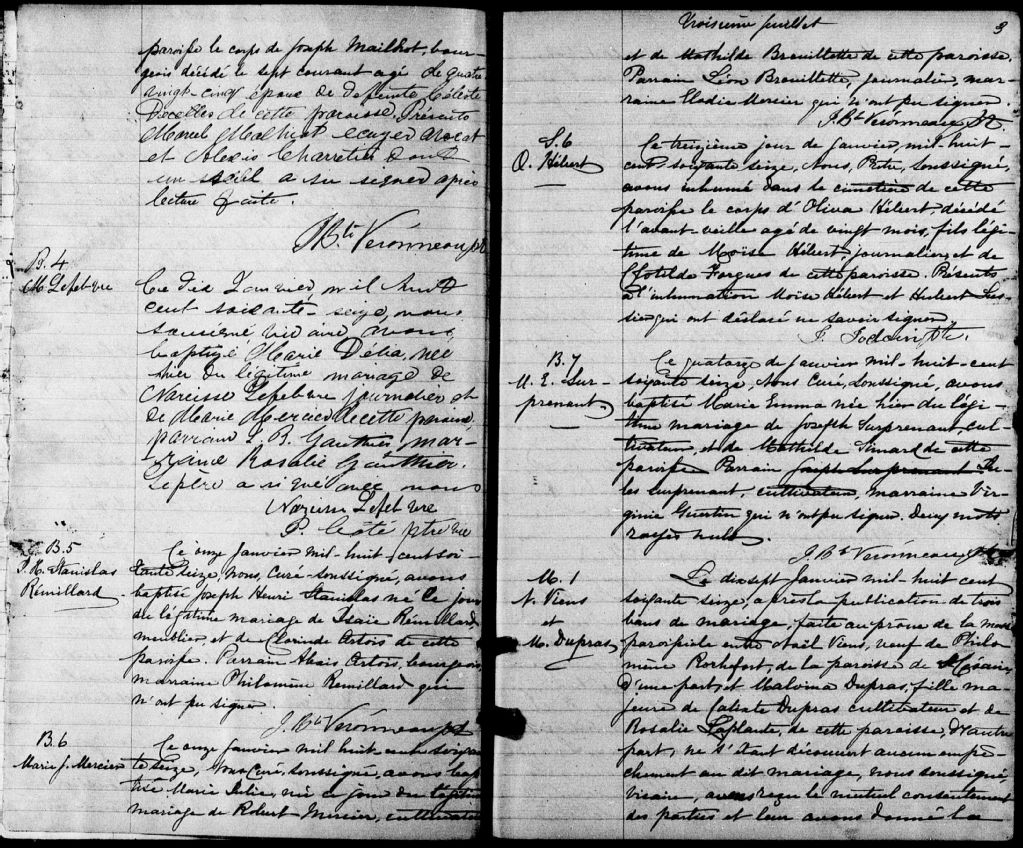 paroisse le corps de Joseph Mailhot, bour-
geois décédé le sept courant agé de quatre
vingt-cinq époux de défunte Céleste
Décelles de cette paroisse. Présents
Marcel Malhiot écuyer avocat
et Alexis Charretier dont
un seul a su signer après
lecture faite.
J Bte Véronneau ptr
B. 4
M. Lefebvre
Ce dix Janvier mil huit
cent soixante-seize, nous
soussigné vicaire, avons
baptizé Marie Délia, née
hier du légitime mariage de
Narcisse Lefebvre journalier et
de Marie Mercier de cette paroisse,
parrain J. B. Gauthier mar-
raine Rosalie Gauthier.
Le père a signé avec nous
Nazaire Lefebvre
P. Côté ptre vic
B. 5
J. H. Stanislas
Rémillard
Ce onze Janvier mil-huit-cent-soi-
xante seize, nous, Curé-soussigné, avons
baptisé Joseph Henri Stanislas né ce jour
du légitime mariage de Isaie Rémillard,
meublier et de Clorinde Artois de cette
paroisse. Parrain Artois, bourgeois,
marraine Philomène Remillard qui
n'ont pu signer.
J. Bte Véronneau ptr
B. 6
Marie J. Mercier
Ce onze Janvier mil huit-cent-soixan-
te seize, Nous Curé, soussigné, avons bap-
tisé Marie Julie, née ce jour du légitime
mariage de Robert Mercier, cultivateur
Troisième feuillet
3
et de Mathilde Brouillette de cette paroisse.
Parrain Léon Brouillette, journalier, mar-
raine Elodie Mercier qui n'ont pu signer.
J. Bte Véronneau Ptr.
S. 6
O. Hébert
Ce treizième jour de janvier, mil-huit-
cent-soixante seize, Nous, Prêtre, soussigné,
avons inhumé dans le cimetière de cette
paroisse le corps d'Oliva Hébert, décédé
l'avant-veille agé de vingt mois, fils légi-
time de Moïse Hébert, journalier, et de
Clotilde Forgues de cette paroisse. Présents
à l'inhumation Moïse Hébert et Hubert Lus-
sier qui ont déclaré ne savoir signer.
J. Jodoin Ptr.
B. 7
M. E. Sur-
prenant
Ce quatorze de Janvier mil-huit-cent
soixante seize, Nous Curé, soussigné, avons
baptisé Marie Emma née hier du légi-
time mariage de Joseph Surprenant, cul-
tivateur, et de Mathilde Simard de cette
paroisse Parrain Joseph Surprenant Ju-
les Surprenant, cultivateur, marraine Vir-
ginie Guertin qui n'ont pu signer. Deux mots
rayés nuls.
J. Bte Véronneau Ptr
M. 1
N. Viens
et
M. Dupras
Le dix sept Janvier mil-huit cent
soixante seize, après la publication de trois
bans de mariage, faite au prône de la messe
paroissiale entre Noël Viens, veuf de Philo-
mène Rochefort, de la paroisse de St Césaire,
d'une part, et Malvina Dupras, fille ma-
jeure de Calixte Dupras cultivateur et de
Rosalie Laplante, de cette paroisse, d'autre
part; ne s'étant découvert aucun empê-
chement au dit mariage, nous soussigné,
vicaire, avons reçu le mutuel consentement
des parties et leur avons donné la